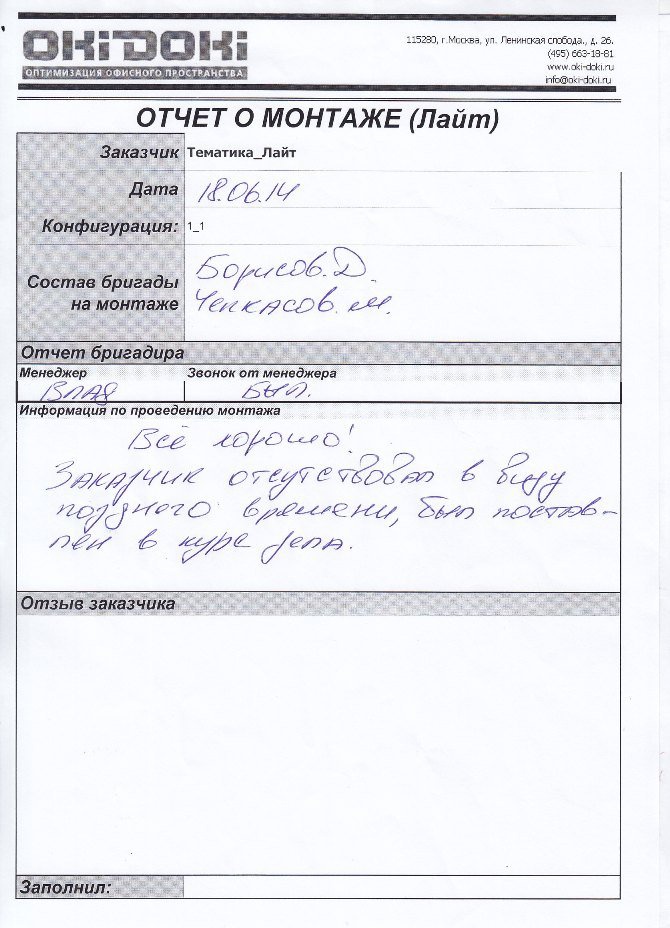 OKIDOKI
ОПТИМИЗАЦИЯ ОФИСНОГО ПРОСТРАНСТВА
115280, г.Москва, ул. Ленинская слобода., д. 26.
(495) 663-18-81
www.oki-doki.ru
info@oki-doki.ru
ОТЧЕТ О МОНТАЖЕ (Лайт)
Заказчик Тематика_Лайт
Дата 18.06.14
Конфигурация: 1_1
Состав бригады Борисов. Д.
на монтаже Чепкасов. М.
Отчет бригадира
Менеджер Звонок от менеджера
Влад был.
Информация по проведению монтажа
Всё хорошо!
Заказчик отсутствовал в виду
позднего времени, был постав-
лен в курс дела.
Отзыв заказчика
Заполнил: